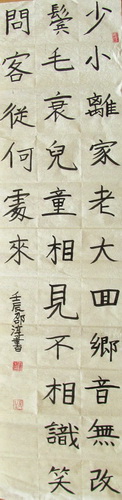 少小離家老大囬鄉音無改
鬢毛衰兒童相見不相識笑
問客從何處來
壬辰邵淳書